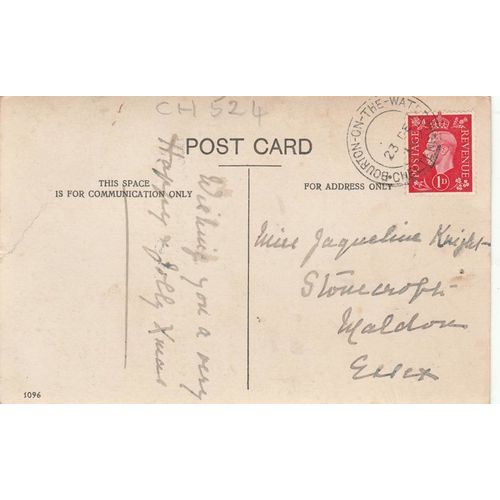 CH 524
POST CARD
THIS SPACE
IS FOR COMMUNICATION ONLY
FOR ADDRESS ONLY
BOURTON-ON-THE-WATER
23 DE
POSTAGE
REVENUE
1D
Wishing you a very
Happy & Jolly Xmas
Miss Jaqueline Knight
Stonecroft
Maldon
Essex
1096